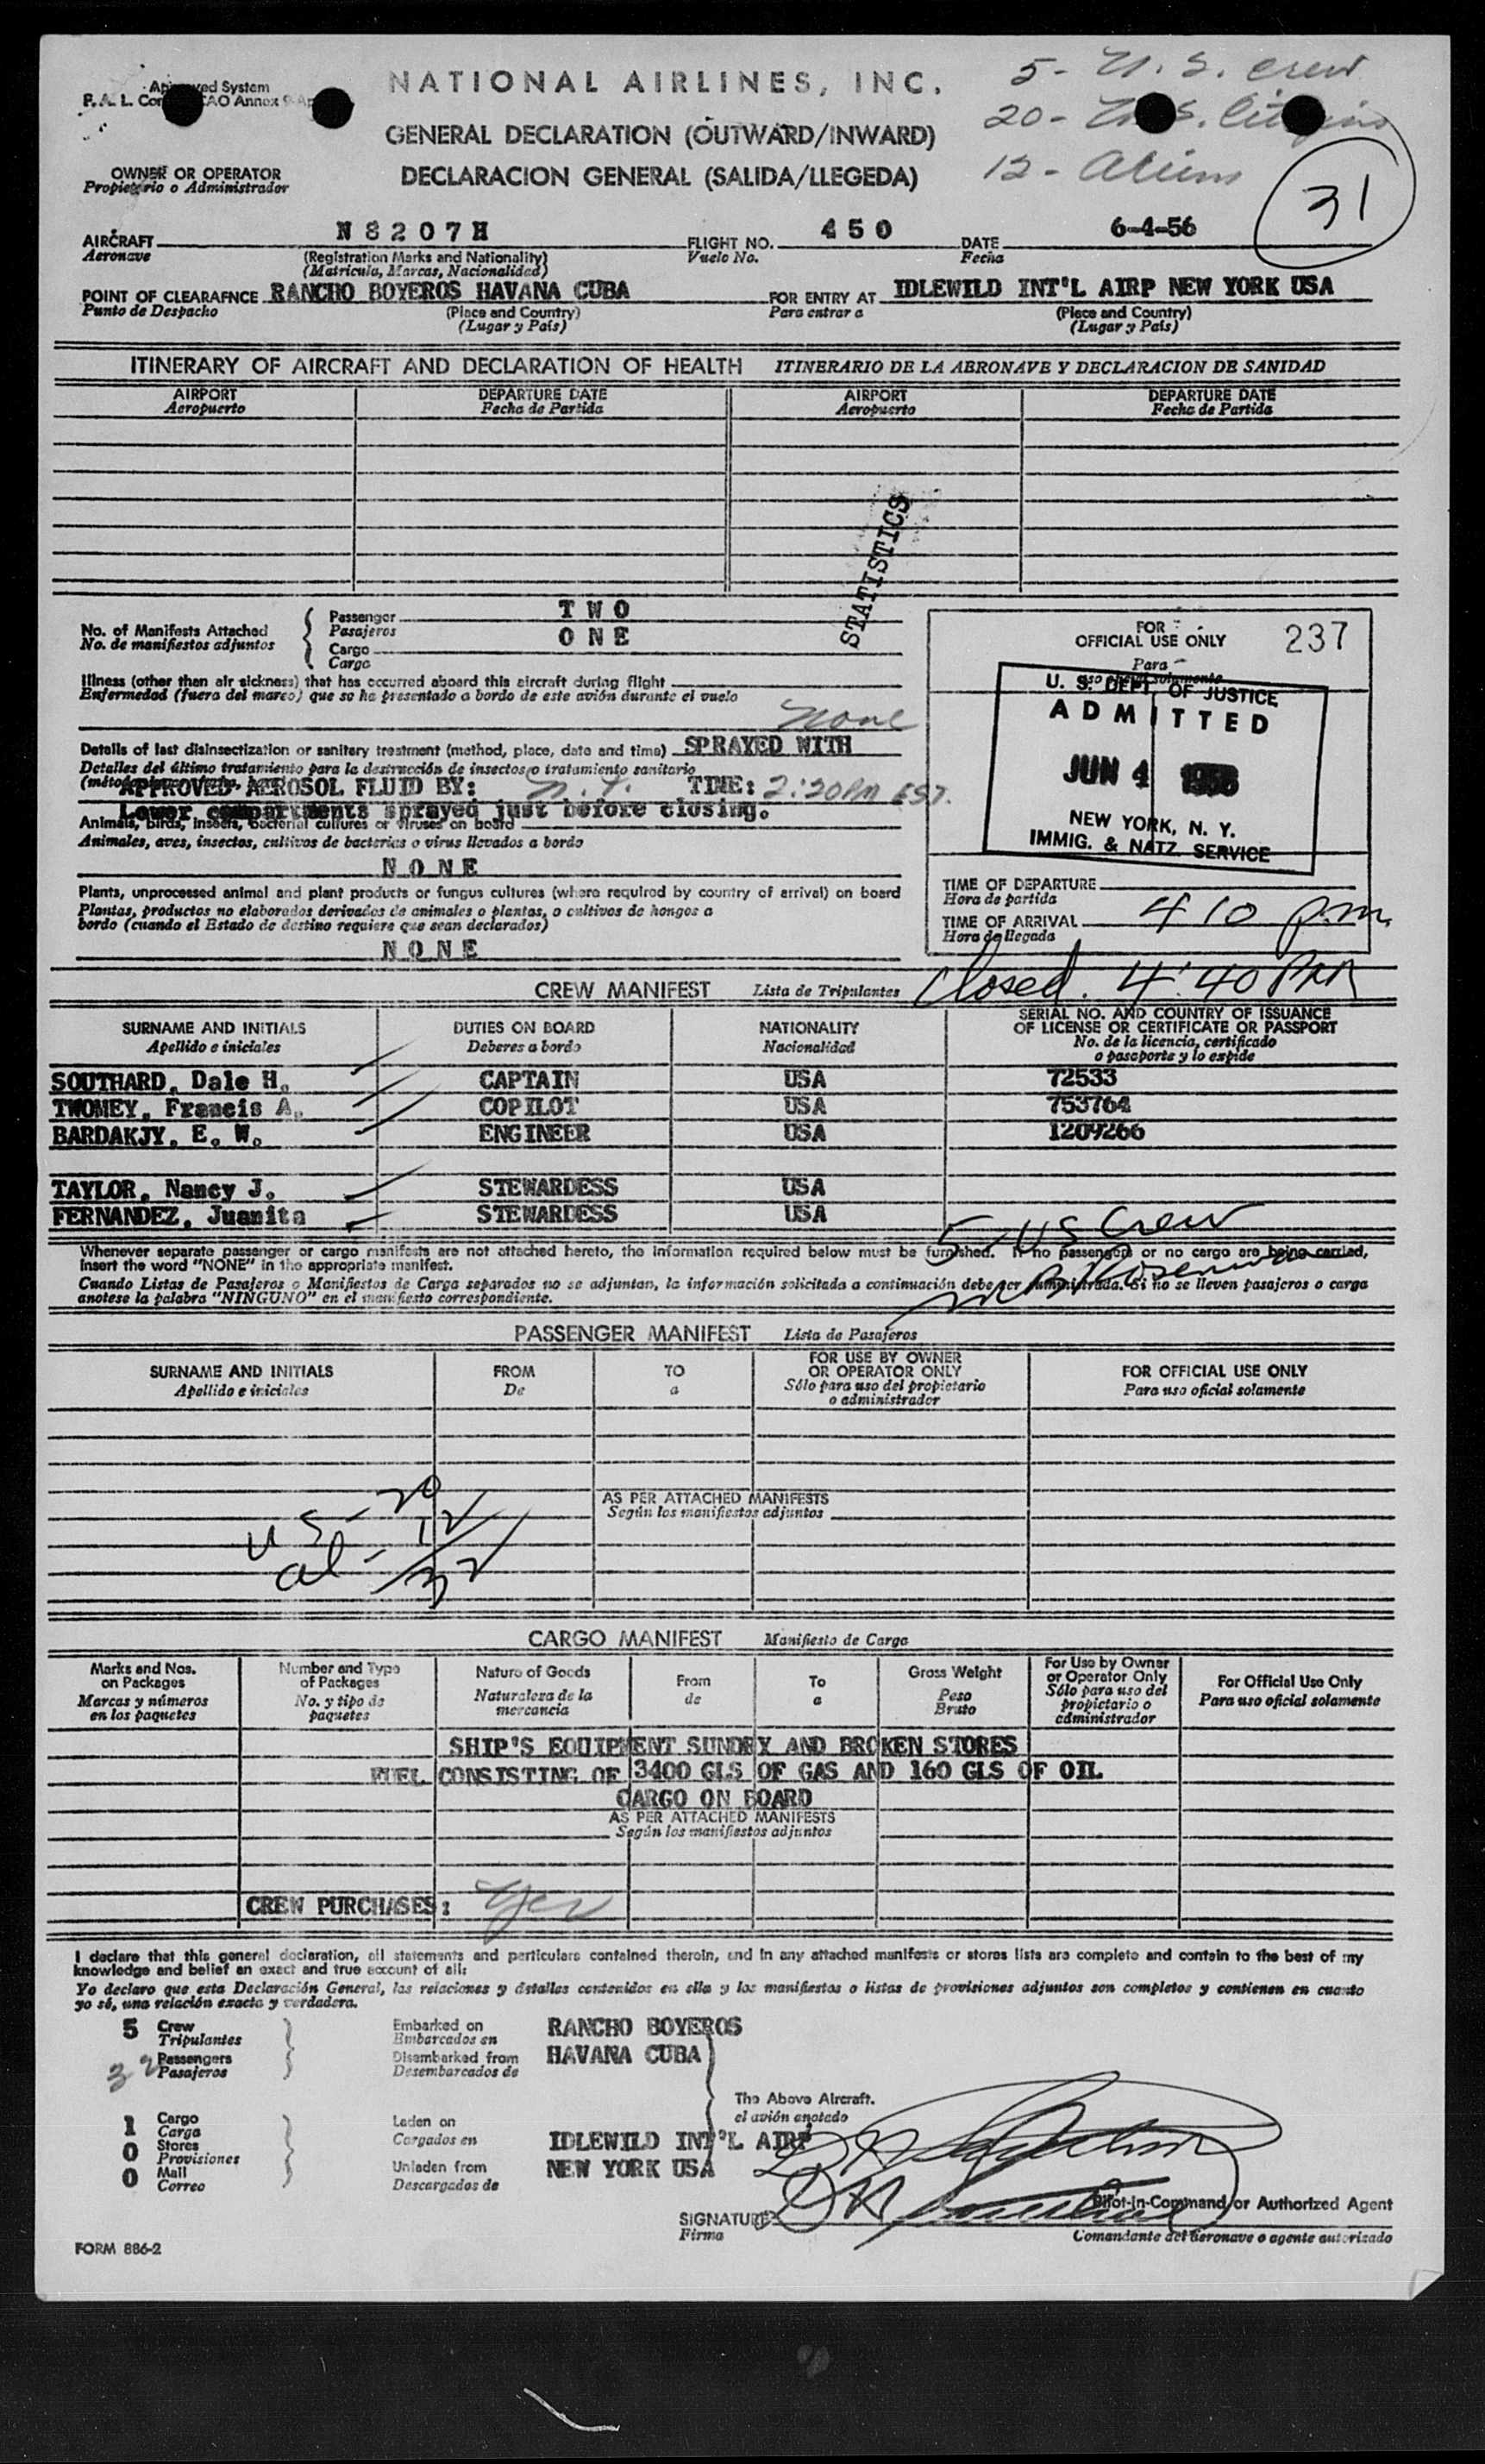 Approved System
NATIONAL AIRLINES, INC.
5 - U.S. crew
20 - U.S. Citizens
12 - Aliens
31
GENERAL DECLARATION (OUTWARD/INWARD)
DECLARACION GENERAL (SALIDA/LLEGEDA)
OWNER OR OPERATOR
Propietario o Administrador
AIRCRAFT N8207H FLIGHT NO. 450 DATE 6-4-56
Aeronave (Registration Marks and Nationality) Vuelo No. Fecha
(Matricula, Marcas, Nacionalidad)
POINT OF CLEARAFNCE RANCHO BOYEROS HAVANA CUBA FOR ENTRY AT IDLEWILD INT'L AIRP NEW YORK USA
Punto de Despacho (Place and Country) Para entrar a (Place and Country)
(Lugar y País) (Lugar y País)
ITINERARY OF AIRCRAFT AND DECLARATION OF HEALTH ITINERARIO DE LA AERONAVE Y DECLARACION DE SANIDAD
AIRPORT DEPARTURE DATE AIRPORT DEPARTURE DATE
Aeropuerto Fecha de Partida Aeropuerto Fecha de Partida
STATISTICS
No. of Manifests Attached
No. de manifiestos adjuntos
Passenger TWO
Pasajeros
Cargo ONE
Carga
Illness (other then air sickness) that has occurred aboard this aircraft during flight
Enfermedad (fuera del mareo) que se ha presentado a bordo de este avión durante el vuelo
None
Details of last disinsectization or sanitary treatment (method, place, date and time) SPRAYED WITH
Detalles del último tratamiento para la destrucción de insectos o tratamiento sanitario
APPROVED AEROSOL FLUID BY: TIME: 2:20PM EST.
Lower compartments sprayed just before closing.
Animals, birds, insects, bacterial cultures or viruses on board
Animales, aves, insectos, cultivos de bacterias o virus llevados a bordo
NONE
Plants, unprocessed animal and plant products or fungus cultures (where required by country of arrival) on board
Plantas, productos no elaborados derivados de animales o plantas, o cultivos de hongos a
bordo (cuando el Estado de destino requiere que sean declarados)
NONE
FOR
OFFICIAL USE ONLY 237
Para
uso oficial solamente
U. S. DEPT. OF JUSTICE
ADMITTED
JUN 4 1956
NEW YORK, N. Y.
IMMIG. & NATZ SERVICE
TIME OF DEPARTURE
Hora de partida
TIME OF ARRIVAL 410 p.m.
Hora de llegada
Closed. 4:40 PM
CREW MANIFEST Lista de Tripulantes
SURNAME AND INITIALS DUTIES ON BOARD NATIONALITY SERIAL NO. AND COUNTRY OF ISSUANCE
OF LICENSE OR CERTIFICATE OR PASSPORT
Apellido e iniciales Deberes a bordo Nacionalidad No. de la licencia, certificado
o pasaporte y lo expide
SOUTHARD, Dale H. CAPTAIN USA 72533
TWOMEY, Francis A. COPILOT USA 753764
BARDAKJY, E. W. ENGINEER USA 1209266
TAYLOR, Nancy J. STEWARDESS USA
FERNANDEZ, Juanita STEWARDESS USA
5 US Crew
Whenever separate passenger or cargo manifests are not attached hereto, the information required below must be furnished. If no passengers or no cargo are being carried,
insert the word "NONE" in the appropriate manifest.
Cuando Listas de Pasajeros o Manifiestos de Carga separados no se adjuntan, la información solicitada a continuación debe ser suministrada. Si no se lleven pasajeros o carga
anotese la palabra "NINGUNO" en el manifiesto correspondiente.
PASSENGER MANIFEST Lista de Pasajeros
SURNAME AND INITIALS FROM TO FOR USE BY OWNER
OR OPERATOR ONLY FOR OFFICIAL USE ONLY
Apellido e iniciales De a Sólo para uso del propietario
o administrador Para uso oficial solamente
AS PER ATTACHED MANIFESTS
Según los manifiestos adjuntos
US - 20
al - 12
32
CARGO MANIFEST Manifiesto de Carga
Marks and Nos.
on Packages
Marcas y números
en los paquetes
Number and Type
of Packages
No. y tipo de
paquetes
Nature of Goods
Naturaleza de la
mercancia
From
de
To
a
Gross Weight
Peso
Bruto
For Use by Owner
or Operator Only
Sólo para uso del
propietario o
administrador
For Official Use Only
Para uso oficial solamente
SHIP'S EQUIPMENT SUNDRY AND BROKEN STORES
FUEL CONSISTING OF 3400 GLS OF GAS AND 160 GLS OF OIL
CARGO ON BOARD
AS PER ATTACHED MANIFESTS
Según los manifiestos adjuntos
CREW PURCHASES: Yes
I declare that this general declaration, all statements and particulars contained therein, and in any attached manifests or stores lists are complete and contain to the best of my
knowledge and belief an exact and true account of all:
Yo declaro que esta Declaración General, las relaciones y detalles contenidos en ella y los manifiestos o listas de provisiones adjuntos son completos y contienen en cuanto
yo sé, una relación exacta y verdadera.
5 Crew
Tripulantes
32 Passengers
Pasajeros
Embarked on RANCHO BOYEROS
Embarcados en
Disembarked from HAVANA CUBA
Desembarcados de
The Above Aircraft.
el avión anotado
1 Cargo
Carga
0 Stores
Provisiones
0 Mail
Correo
Laden on
Cargados en IDLEWILD INT'L AIRP
Unladen from NEW YORK USA
Descargados de
Pilot-in-Command or Authorized Agent
SIGNATURE
Firma Comandante del aeronave o agente autorizado
FORM 886-2